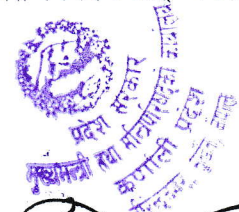 प्रदेश सरकार
मुख्यमन्त्री तथा मन्त्रिपरिषद्को कार्यालय
कर्णाली प्रदेश